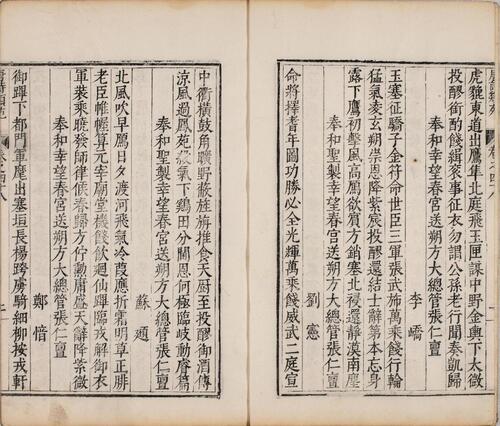 虎旄東道出鷹隼北庭飛玉匣謀中野金輿下太微
投醪銜酌餞緝袞事征衣勿謂公孫老行聞奏凱歸
奉和幸望春宮送朔方大總管張仁亶
李嶠
玉塞征驕子金符命世臣三軍張武旆萬乘餞行輪
猛氣凌玄朔崇恩降紫宸投醪還結士辭第本忘身
露下鷹初擊風高鴈欲賓方銷塞北祲還靜漠南塵
奉和聖製幸望春宮送朔方大總管張仁亶
劉憲
命將擇耆年圖功勝必全光輝萬乘餞威武二庭宣
中衢橫鼓角曠野蔽旌旃推食天厨至投醪御酒傳
涼風過鳳苑殺氣下鷄田分閫恩何極臨岐動睿篇
奉和聖製幸望春宮送朔方大總管張仁亶
蘇頲
北風吹早鴈日夕渡河飛氣冷葭應折霜明草正腓
老臣帷幄算元宰廟堂機餞飲迴仙蹕臨戎解御衣
軍裝乘曉發師律候春歸方佇勲庸盛天辭降紫微
奉和幸望春宮送朔方大總管張仁亶
鄭愔
御蹕下都門軍麾出塞垣長楊跨虜騎細柳按戎軒